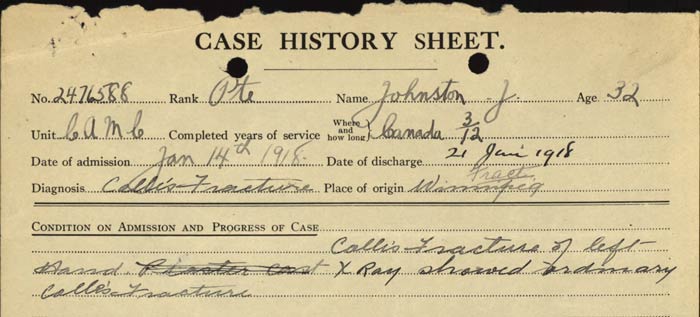 CASE HISTORY SHEET.
No. 2476588 Rank Pte Name Johnston J. Age 32
Unit C A M C Completed years of service Where and how long} Canada 3/12
Date of admission Jan 14th 1918. Date of discharge 21 Jan 1918
Fract.
Diagnosis Colles Fracture Place of origin Winnipeg
CONDITION ON ADMISSION AND PROGRESS OF CASE
Colles Fracture of left
Hand Plaster cast X Ray showed ordinary
Colles Fracture